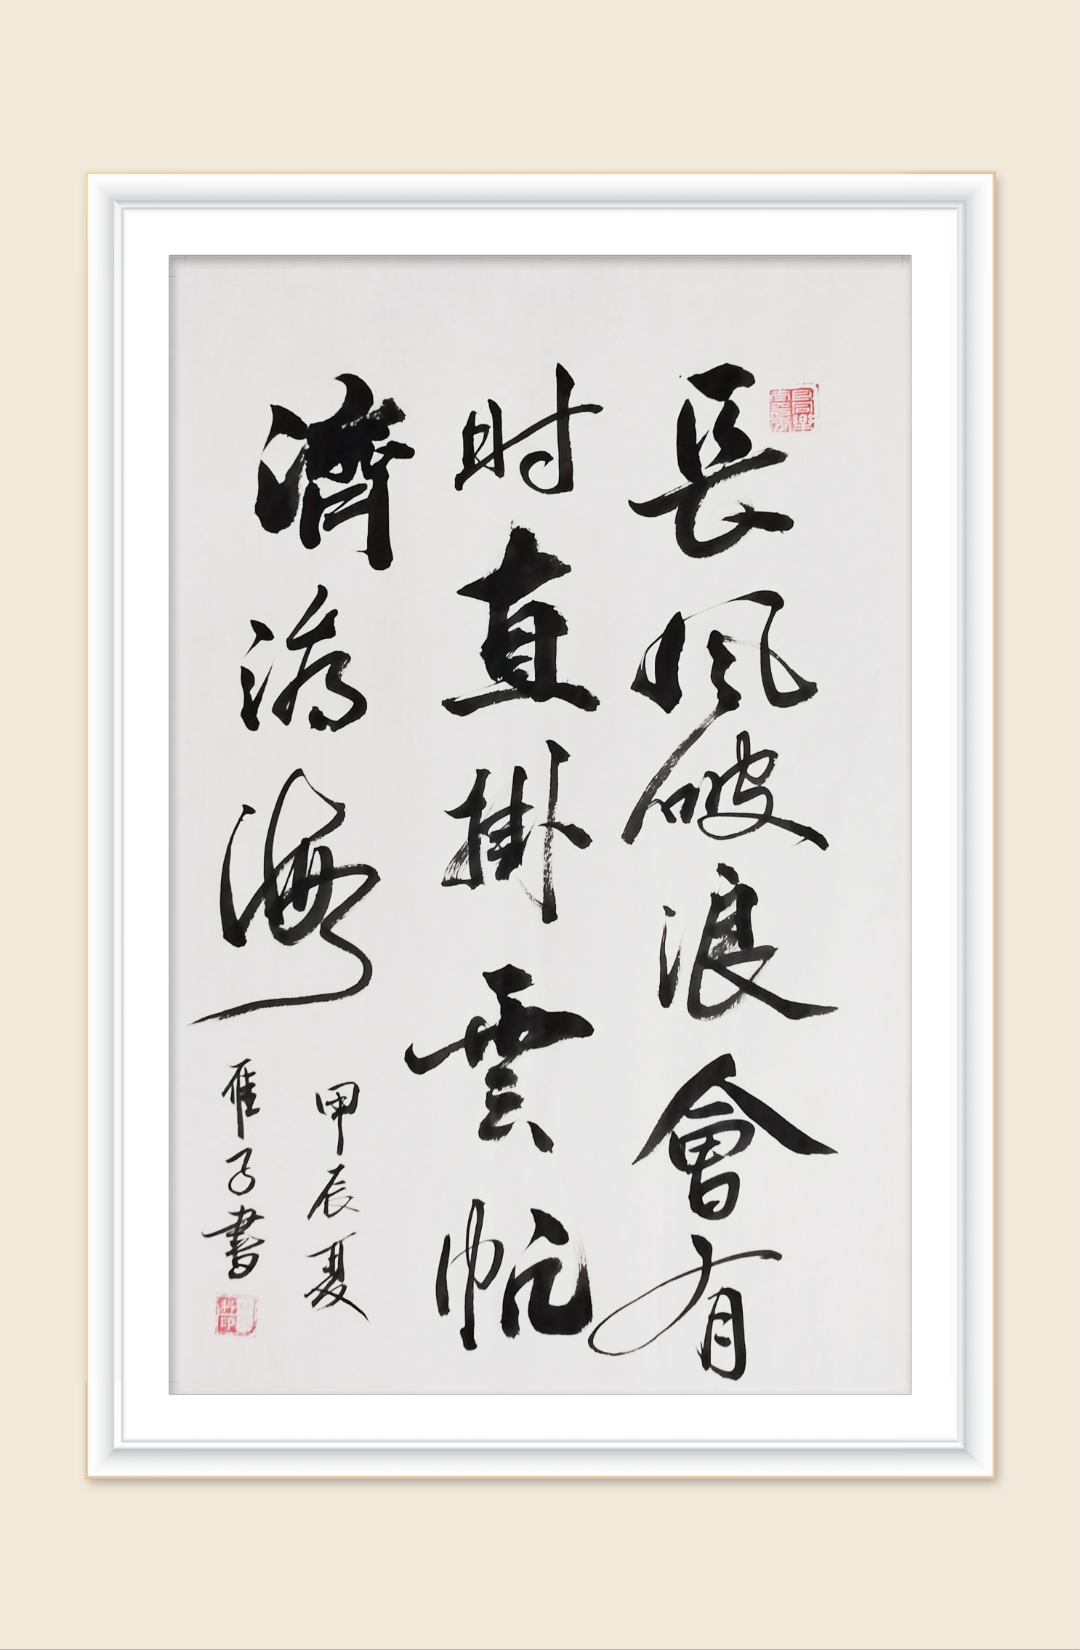 長風破浪會有
时直掛雲帆
濟滄海
甲辰夏
雁子書